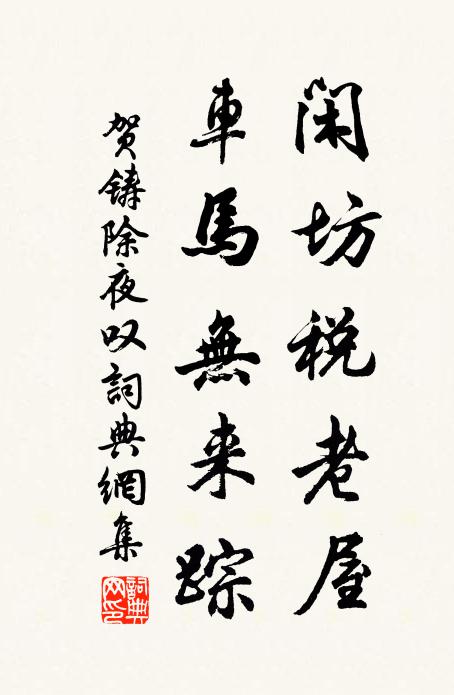 閑坊税老屋
車馬無来踪
贺鑄除夜叹詞典網集
詞典网印